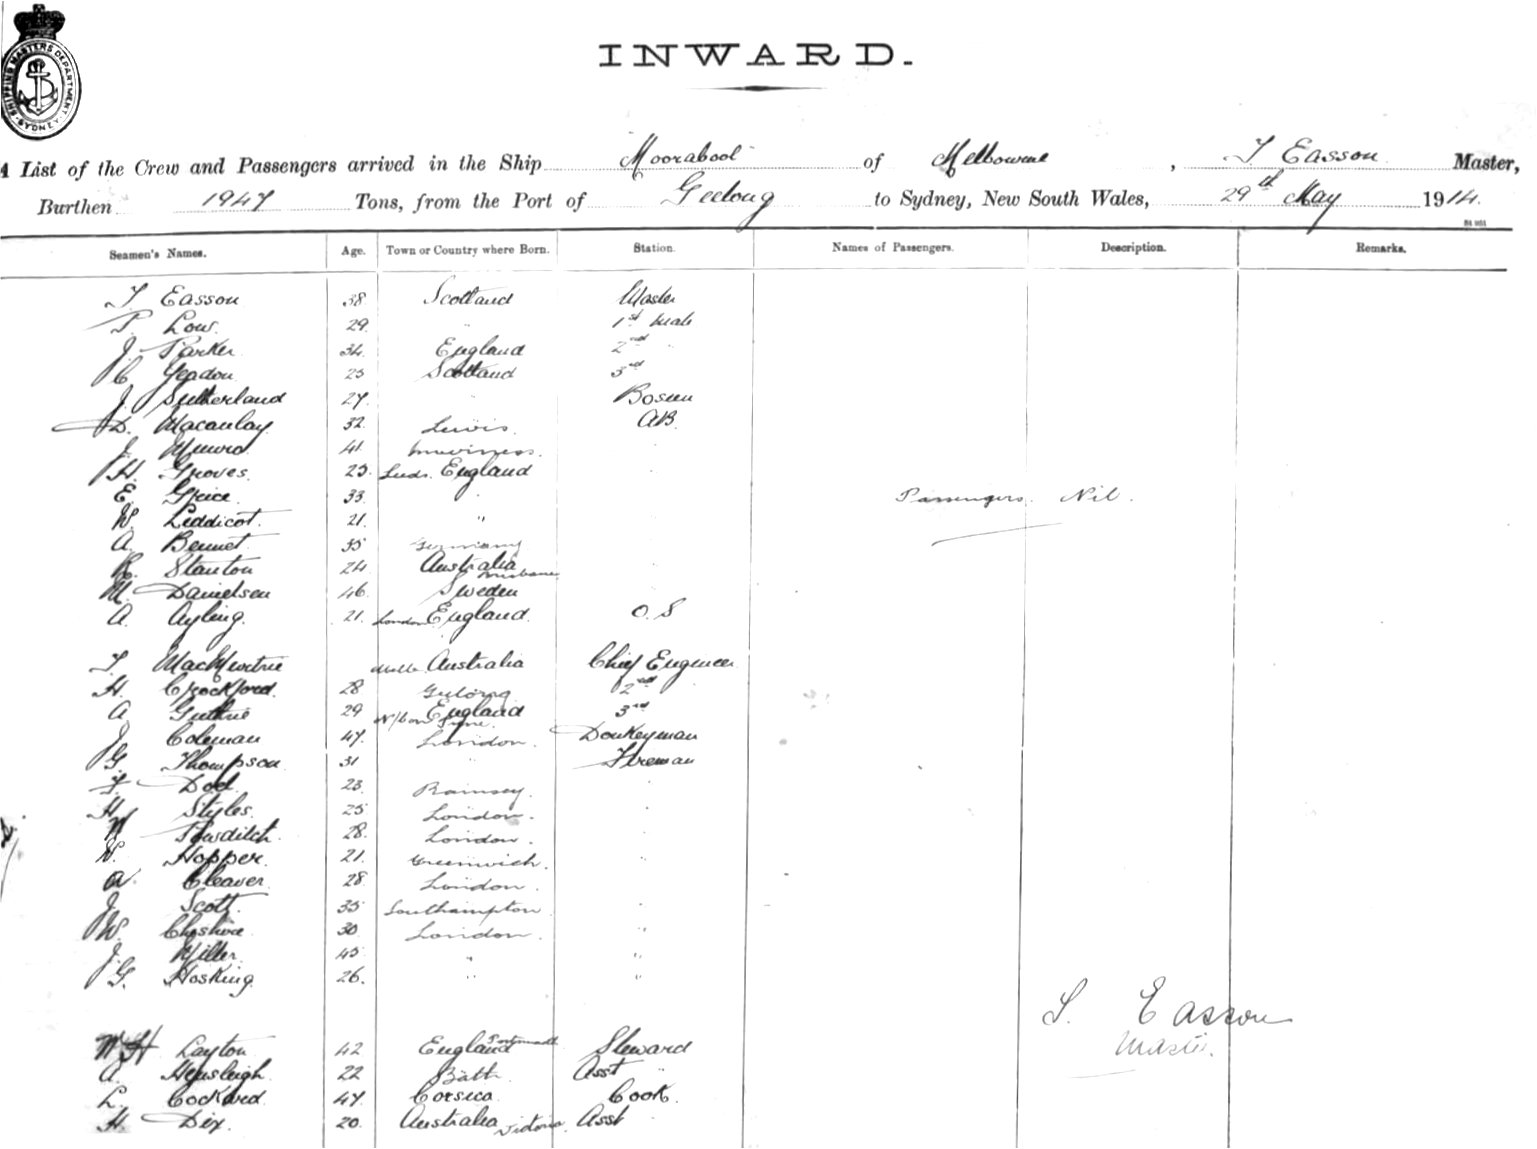 SHIPPING MASTERS DEPARTMENT SYDNEY
INWARD.
A List of the Crew and Passengers arrived in the Ship Moorabool of Melbourne, T Easson Master,
Burthen 1947 Tons, from the Port of Geelong to Sydney, New South Wales, 29th May 1914.
Seamen's Names. Age. Town or Country where Born. Station. Names of Passengers. Description. Remarks.
T Easson 38 Scotland Master
T. Low. 29. " 1st Mate
J. Parker 34. England 2nd "
C Yeadon 25 Scotland 3rd
J. Sutherland 27. " Bosun
D. Macaulay 32. Lewis. AB.
J. Munro 41. Inverness.
H. Groves. 23. Leeds. England
E. Grice 33. " Passengers. Nil.
W. Leddicot. 21. "
A. Bennet. 35 Germany
R. Stanton 24 Australia Brisbane
M. Danielsen 46. Sweden
A. Ayling. 21. London England. O. S
T. Melb. Australia Chief Engineer
H. Crockford. 28 Geelong 2nd
A Guthrie 29 England 3rd
J. Coleman 47. London. Donkeyman
G. Thompson 31 " Fireman
F. Dod. 23. Ramsey.
H. Styles. 25 London.
W. Powditch. 28. London.
W. Hopper. 21. Greenwich.
A. Cleaver. 28. London.
J. Scott. 35 Southampton
W. Cheshire 30 London.
J. Miller. 45. " "
G. Hosking. 26. " "
T. Easson
Master.
W H Layton 42 England Portsmouth Steward
A. Hensleigh 22 Bath Asst "
L. Cockard. 47. Corsica Cook.
H. Dix. 20. Australia Victoria. Asst